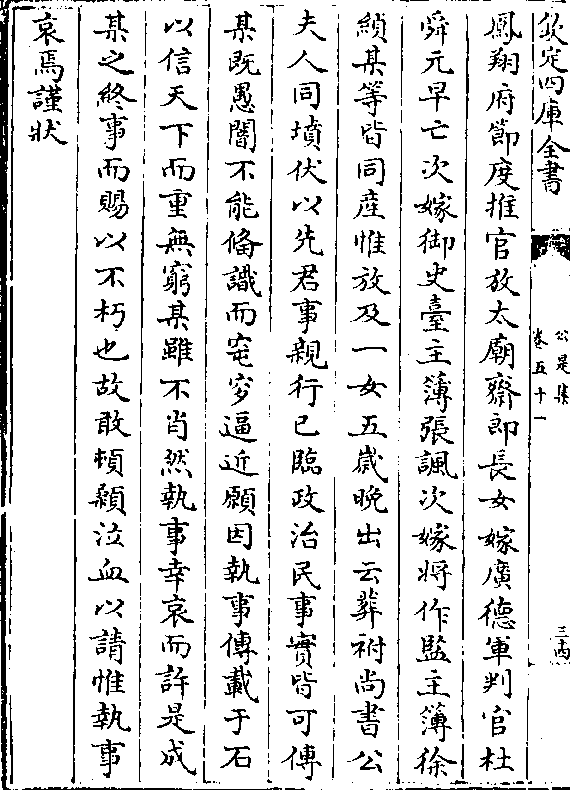 欽定四庫全書
公是集
卷五十一
三十四
鳳翔府節度推官放太廟齋郎長女嫁廣德軍判官杜
舜元早亡次嫁御史臺主簿張諷次嫁將作監主簿徐
縝某等皆同產惟放及一女五歲晚出云葬祔尚書公
夫人同墳伏以先君事親行已臨政治民事實皆可傳
某既愚闇不能偹識而窀穸逼近願因執事傳載于石
以信天下而重無窮某雖不肖然執事幸哀而許是成
某之終事而賜以不朽也故敢頓顙泣血以請惟執事
哀焉謹狀